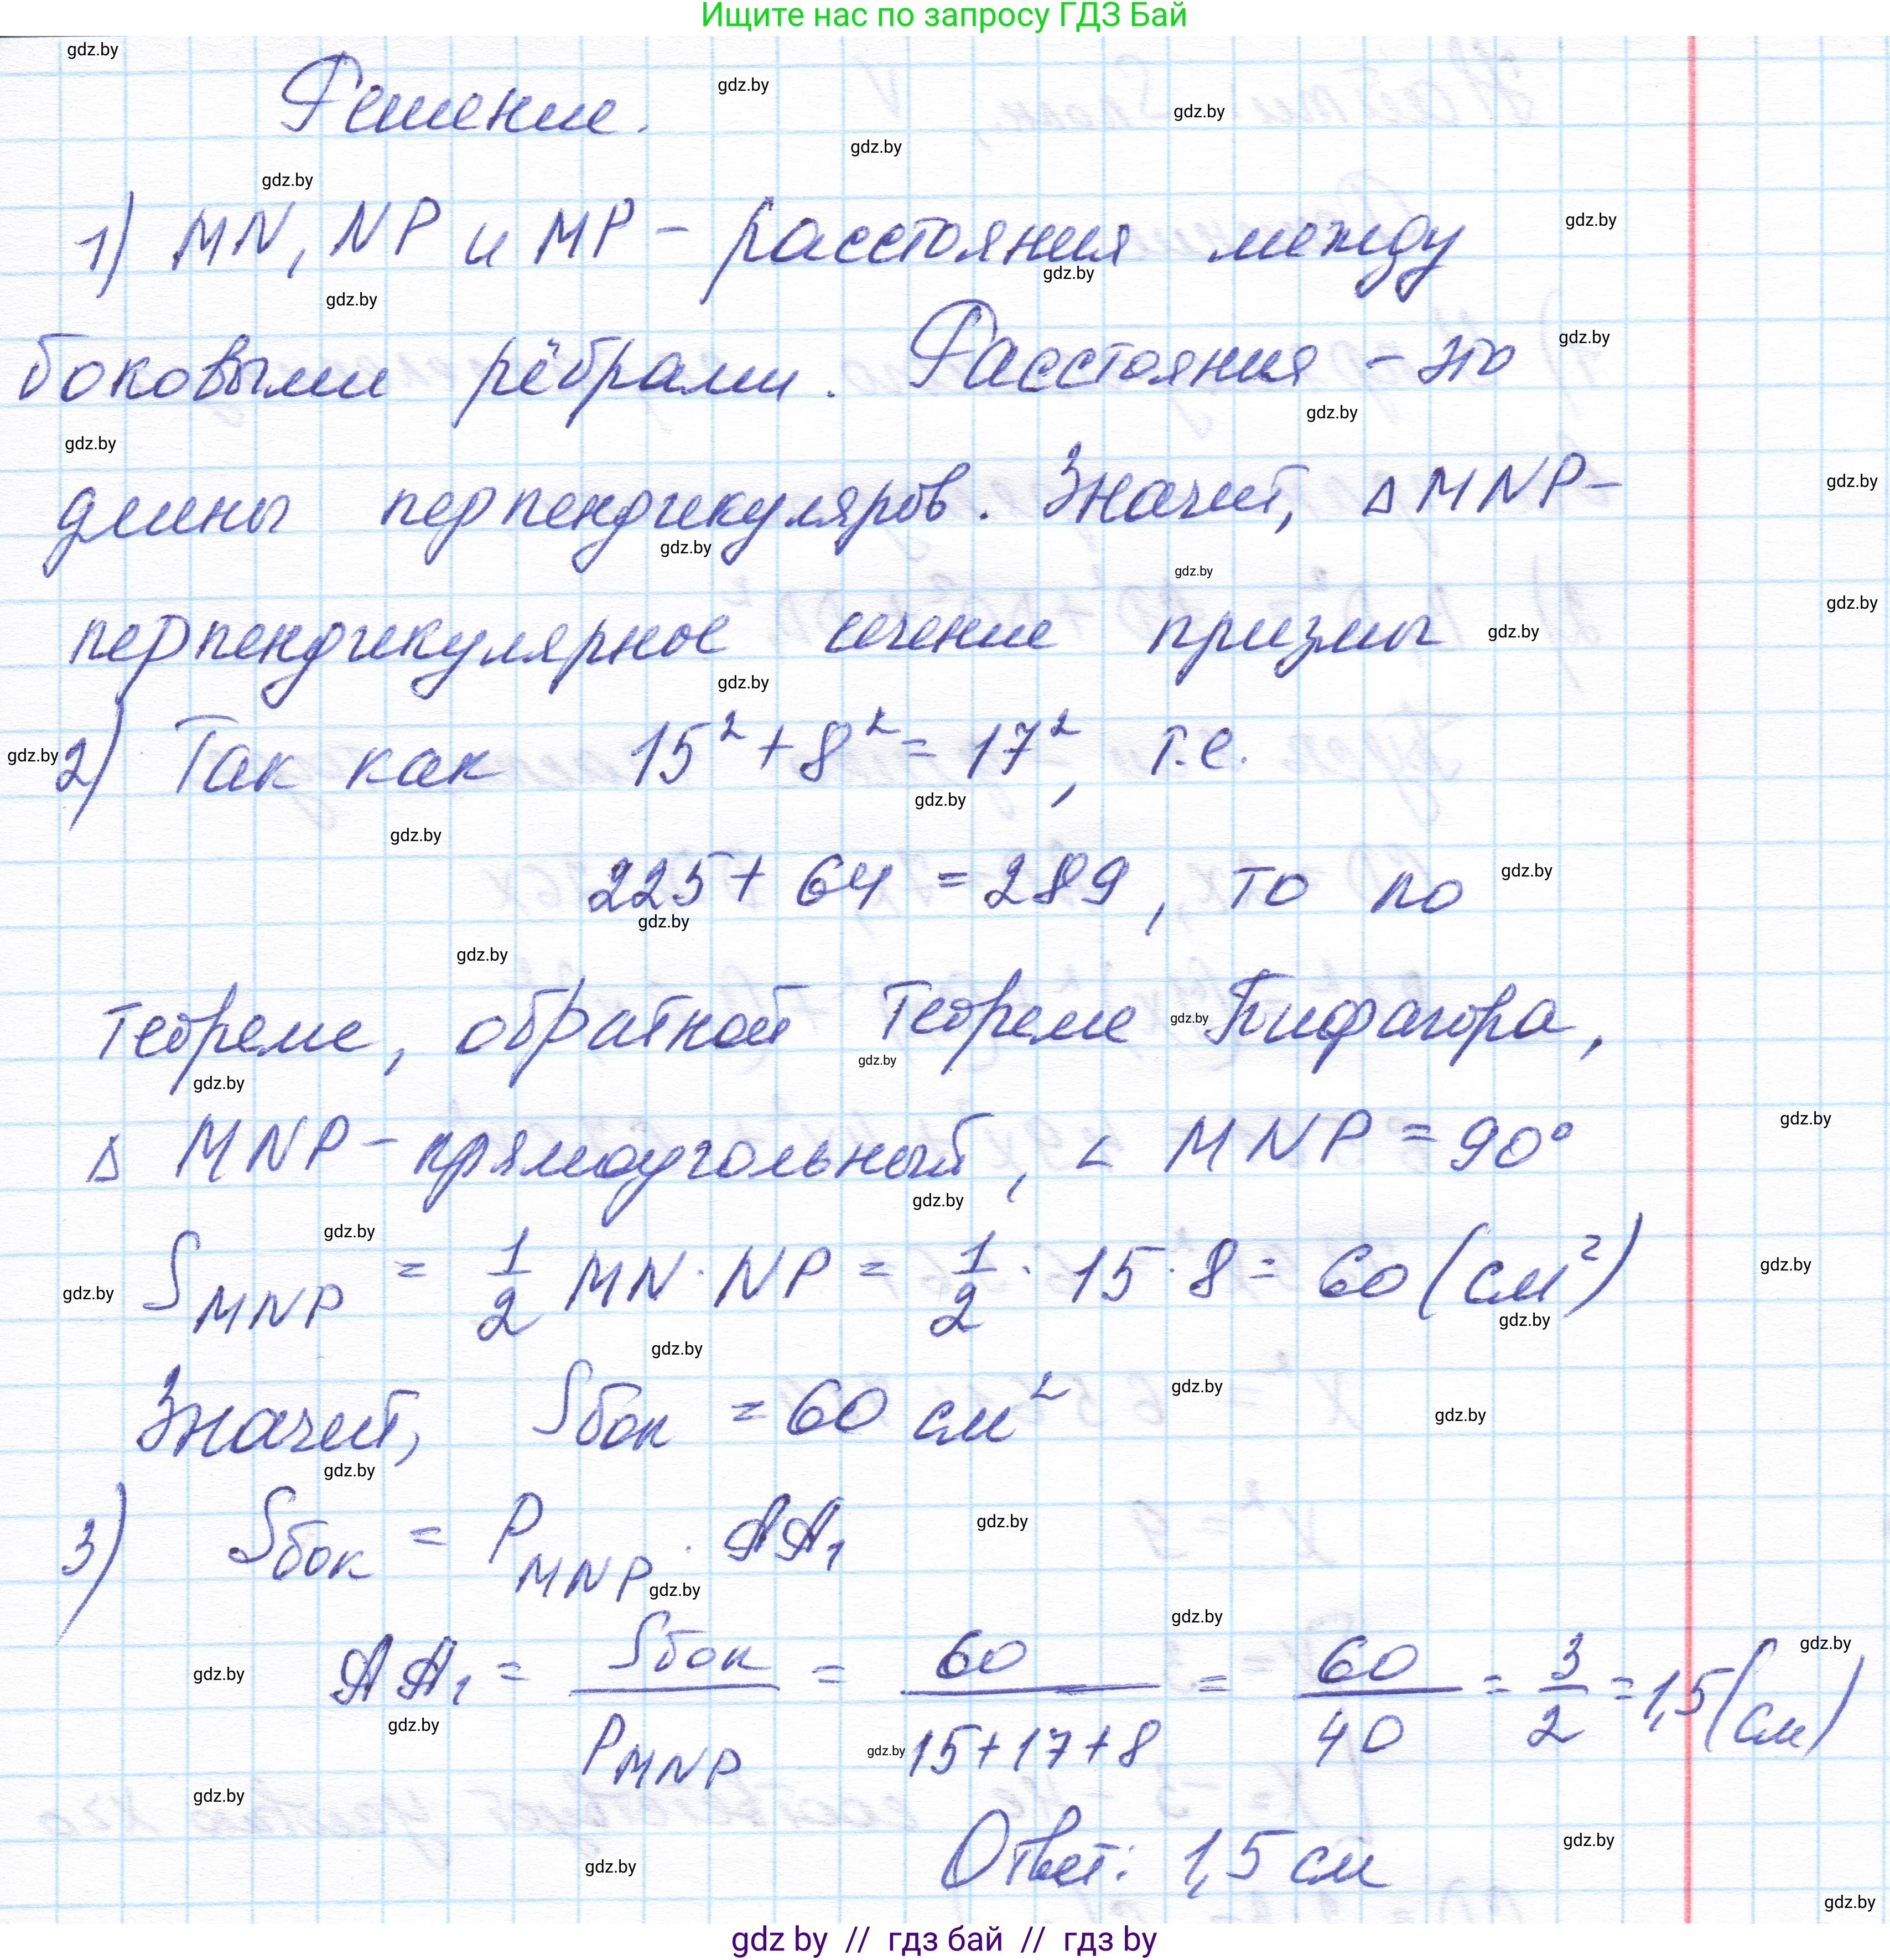 Ищите нас по запросу ГДЗ Бай
Решение.
1) MN, NP и MP - расстояния между
боковыми рёбрами. Расстояния - это
длины перпендикуляров. Значит, △MNP-
перпендикулярное сечение призмы
2) Так как 15² + 8² = 17², т.е.
225 + 64 = 289, то по
теореме, обратной теореме Пифагора,
△ MNP - прямоугольный, ∠ MNP = 90°
S_MNP = 1/2 MN · NP = 1/2 · 15 · 8 = 60 (см²)
Значит, Sбок = 60 см²
3) Sбок = P_MNP · AA₁
AA₁ = Sбок / P_MNP = 60 / (15+17+8) = 60/40 = 3/2 = 1,5 (см)
Ответ: 1,5 см
gdz by // гдз бай // гдз by